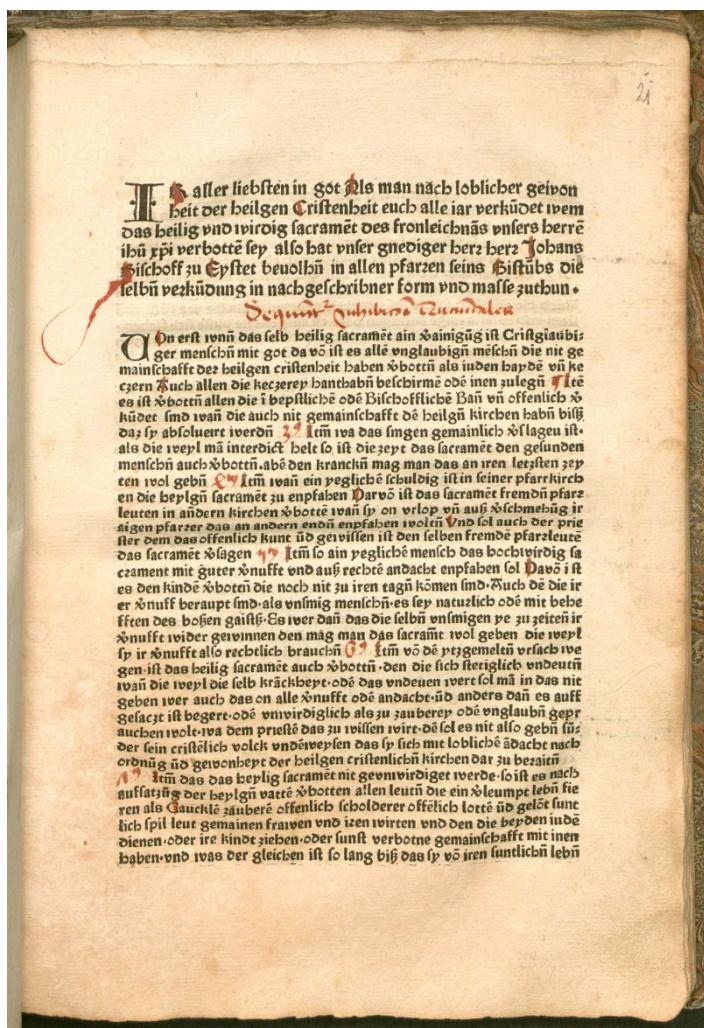 21
IR aller liebsten in got Als man nach loblicher gewon
heit der heilgen Cristenheit euch alle iar verkũdet wem
das heilig vnd wirdig sacramẽt des fronleichnãs vnsers herrẽ
ihũ xp̃i verbottẽ sey also hat vnser gnediger herr herr Johans
Bischoff zu Eystet beuolhñ in allen pfarren seins Bistũbs die
selbñ verkũdung in nachgeschribner form vnd masse zuthun .
VOn erst wnñ das selb heilig sacramẽt ain v̾ainigũg ist Cristglaubi⸗
ger menschñ mit got da võ ist es allẽ vnglaubigñ mẽschñ die nit ge
mainschafft der heilgen cristenheit haben v̾bottñ als iuden haydẽ vñ ke
czern Auch allen die keczerey hanthabñ beschirmẽ odẽ inen zulegñ Itẽ
es ist v̾bottñ allen die ĩ bepstlichẽ odẽ Bischofflichẽ Bañ vñ offenlich v̾
kũdet sind wañ die auch nit gemainschafft dẽ heilgñ kirchen habñ biß
daz sy absoluiert werdñ 3 Itm̃ wa das singen gemainlich v̾slageu ist·
als die weyl mã interdict helt so ist die zeyt das sacramẽt den gesunden
menschñ auch v̾bottñ. abẽ den kranckñ mag man das an iren letzsten zey
ten wol gebñ Itm̃ wañ ein yegliche schuldig ist in seiner pfarrkirch
en die heylgñ sacramẽt zu enpfahen Darvõ ist das sacramẽt fremdñ pfarr
leuten in añdern kirchen v̾bottẽ wañ sy on vrlop vñ auß v̾schmehũg ir
aigen pfarrer das an andern endñ enpfahen woltñ Vnd sol auch der prie
ster dem das offenlich kunt ũd gewissen ist den selben fremdẽ pfarrleutẽ
das sacramẽt v̾sagen Itm̃ so ain yegliche mensch das hochwirdig sa
crament mit guter v̾nufft vnd auß rechtẽ andacht enpfahen sol Davõ i st
es den kindẽ v̾bottñ die noch nit zu iren tagñ kõmen sind·Auch dẽ die ir
er v̾nuff beraupt sind·als vnsinig menschñ·es sey naturlich odẽ mit behe
fften des boßen gaistß·Es wer dañ das die selbñ vnsinigen ye zu zeitẽn ir
v̾nufft wider gewinnen den mag man das sacram̃t wol geben die weyl
sy ir v̾nufft also rechtlich brauchñ 6 Itm̃ võ dẽ ytzgemeltñ vrsach we
gen·ist das heilig sacramẽt auch v̾bottñ·den die sich stetiglich vndeutñ
wañ die weyl die selb krãckheyt·odẽ das vndeuen wert sol mã in das nit
geben wer auch das on alle v̾nufft odẽ andacht·ũd anders dañ es auff
gesaczt ist begert·odẽ vnwirdiglich als zu zauberey odẽ vnglaubñ gepr
auchen wolt·wa dem priestẽ das zu wissen wirt·dẽ sol es nit also gebñ sũ⸗
der sein cristẽlich volck vndẽweysen das sy sich mit loblichẽ ãdacht nach
ordnũg ũd gewonheyt der heilgen cristenlichñ kirchen dar zu beraitñ
Itm̃ das das heylig sacramẽt nit gevnwirdiget werde·so ist es nach
auffsatzũg der heylgñ vattẽ v̾botten allen leutñ die ein v̾leumpt lebñ fie
ren als Gaucklẽ zauberẽ offenlich scholderer offẽlich lottẽ ũd gelõt sunt
lich spil leut gemainen frawen vnd iren wirten vnd den die beyden iudẽ
dienen·oder ire kindt ziehen·oder sunst verbotne gemainschafft mit inen
haben·vnd was der gleichen ist so lang biß das sy võ iren suntlichñ lebñ